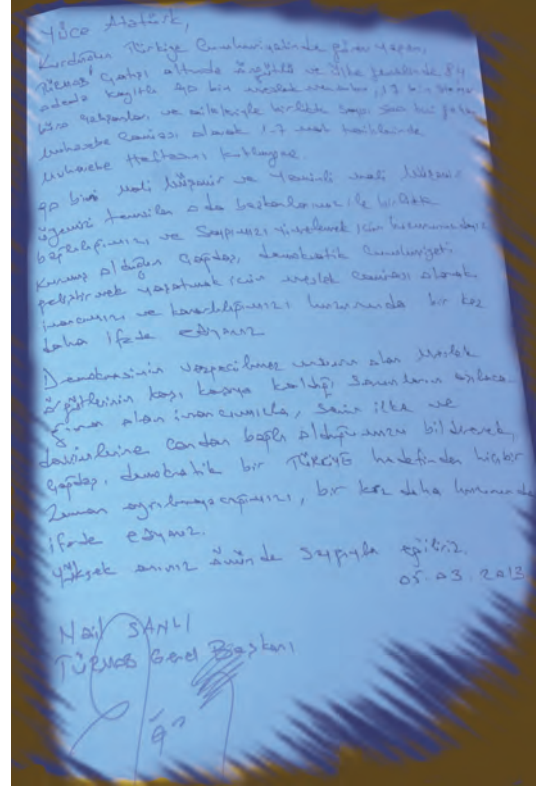 Yüce Atatürk,
Kurduğun Türkiye Cumhuriyetinde görev yapan,
TÜRMOB çatısı altında örgütlü ve ülke genelinde 84
odada kayıtlı 90 bin meslek mensubu, 19 bin
büro çalışanları, ve aileleriyle birlikte sayısı
Muhasebe Camiası olarak 1-7 Mart tarihlerinde
Muhasebe Haftasını kutluyoruz.
90 bini Mali Müşavir ve Yeminli Mali Müşavir
üyemizi temsilen oda başkanlarımız ile birlikte
bağlılığımızı ve saygımızı yinelemek için huzurundayız
Kurmuş olduğun çağdaş, demokratik Cumhuriyeti
geliştirmek yaşatmak için meslek camiası olarak
inancımızı ve kararlılığımızı huzurunda bir kez
daha ifade ediyoruz
Demokrasinin vazgeçilmez unsuru olan Meslek
örgütlerinin karşı karşıya kaldığı sorunların aşılaca-
ğına olan inancımızla, senin ilke ve
devrimlerine candan bağlı olduğumuzu bildirerek,
çağdaş, demokratik bir TÜRKİYE hedefinden hiçbir
zaman ayrılmayacağımızı, bir kez daha huzurunda
ifade ediyoruz.
Yüksek anınız önünde saygıyla eğiliriz.
05.03.2013
Nail SANLI
TÜRMOB Genel Başkanı